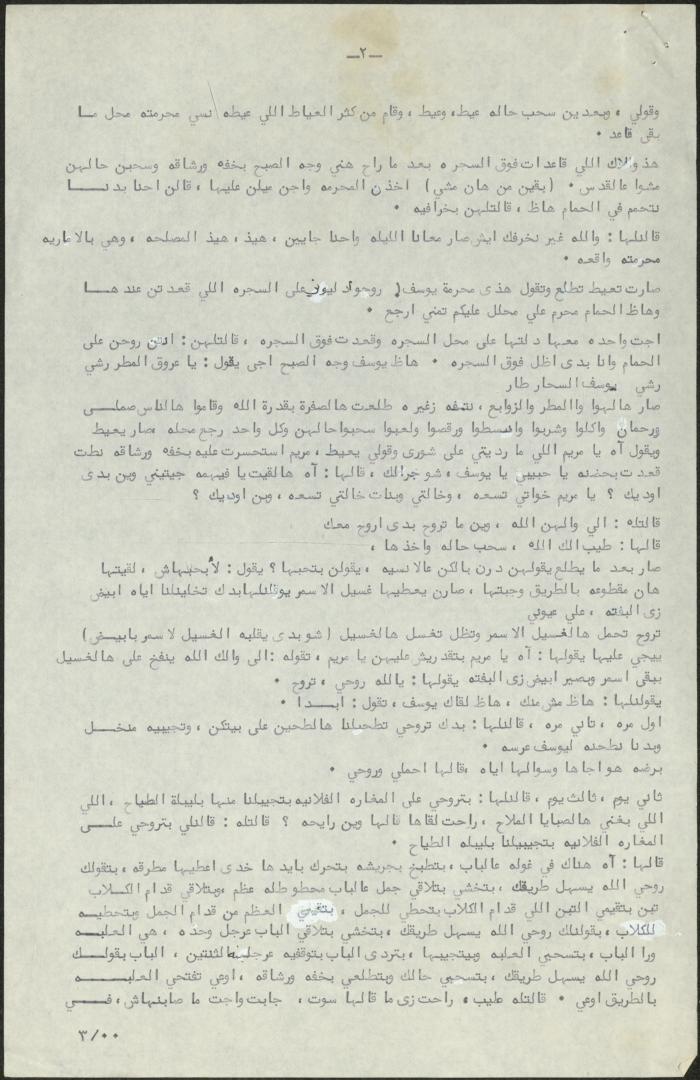 ــ٢ــ
وقولي ، وبعدين سحب حاله عيط، وعيط ، وقام من كثر العياط اللي عيطه نسي محرمته محل مـــا
بقى قاعد ٠
هذ ولاك اللي قاعدات فوق السجره بعد ما راح هني وجه الصبح بخفه ورشاقه وسحبن حالهن
مشوا عالقدس ٠ (بقين من هان مشي) اخذن المحرمه واجن ميلن عليها ، قالن احنا بدنـــا
نتحمم في الحمام هاظ ، قالتلهن بخرافيه ٠
قالنلها : والله غير نخرفك ايش صار معانا الليله واحنا جايين ، هيذ ، هيذ المصلحه ، وهي بالاماريه
محرمته واقعه ٠
صارت تعيط تطلع وتقول هذى محرمة يوسف، روحوا دليوني على السجره اللي قعدتن عندهــا
وهاظ الحمام محرم علي محلل عليكم تمني ارجع ٠
اجت واحده معها دلتها على محل السجره وقعدت فوق السجره ، قالتلهن : انتن روحن على
الحمام وانا بدى اظل فوق السجره ٠ هاظ يوسف وجه الصبح اجى يقول : يا عروق المطر رشي
رشي يوسف السحار طار
صار هالهوا والمطر والزوابع ، نتفه زغيره طلعت هالصفرة بقدرة الله وقاموا هالناس صملـــى
ورحمان واكلوا وشربوا وانسطوا ورقصوا ولعبوا سحبوا حالهن وكل واحد رجع محله صار يعيط
ويقول آه يا مريم اللي ما رديتي على شورى وقولي يعيط ، مريم استحسرت عليه بخفه ورشاقه نطت
قعدت بحضنه يا حبيبي يا يوسف ، شو جرالك ، قالها : آه هالقيت يا فيهمه جيتيني وين بدى
اوديك ؟ يا مريم خواتي تسعه ، وخالتي وبنات خالتي تسعه ، وين اوديك ؟
قالتله : الي والهن الله ، وين ما تروح بدى اروح معك
قالها : طيب الك الله ، سحب حاله واخذها ،
صار بعد ما يطلع يقولهن درن بالكن عالانسيه ، يقولن بتحبها ؟ يقول : لا بحبهاش ، لقيتها
هان مقطوعه بالطريق وجبتها ، صارن يعطيها غسيل الاسمر يوقلنلها بدك تخلينلنا اياه ابيض
زى البفته ، علي عيوني
تروح تحمل هالغسيل الاسمر وتظل تغسل هالغسيل (شو بدى يقلبه الغسيل لاسمر بابيــض)
ييجي عليها يقولها : آه يا مريم بتقدريش عليهن يا مريم ، تقوله : الى والك الله ينفخ على هالغسيل
يبقى اسمر وبصير ابيض زى البفته يقولها : يالله روحي ، تروح ٠
يقولنلها : هاظ مش منك ، هاظ لقاك يوسف ، تقول : ابــــدا ٠
اول مره ، تاني مره ، قالنلها : بدك تروحي تطحيلنا هالطحين على بيتكن ، وتجيبيه منخـــل
وبدنا نطحنه ليوسف عرسه ٠
برضه هو اجاها وسوالها اياه ، قالها احملي وروحي ٠
ثاني يوم ، ثالث يوم ، قالنلها : بتروحي على المغاره الفلانيه بتجيبلنا منها بلبلة الطياح ، اللي
اللي بغني هالصبايا الملاح ، راحت لقاها قالها وين رايحه ؟ قالتله : قالنلي بتروحي علـــى
المغاره الفلانيه بتجيبيلنا بلبله الطياح ٠
قالها : آه هناك في غوله عالباب ، بتطبخ بجريشه بتحرك بايدها خدى اعطيها مطرقه ، بتقولك
روحي الله يسهل طريقك ، بتخشي بتلاقي جمل عالباب محطوطله عظم ، وبتلاقي قدام الكــلاب
تبن بتقيمي التبن اللي قدام الكلاب بتحطي للجمل ، بتقيمي العظم من قدام الجمل وبتحطيــه
للكلاب ، بقولنلك روحي الله يسهل طريقك ، بتخشي بتلاقي الباب عرجل وحده ، هي العلبــه
ورا الباب ، بتسحبي العلبه وبيتجيبها ، بتردى الباب بتوقفيه عرجليه الثنتين ، الباب بقولــك
روحي الله يسهل طريقك ، بتسحبي حالك وبتطلعي بخفه ورشاقه ، اوعي تفتحي العلبــــه
بالطريق اوعي ٠ قالتله طيب ، راحت زى ما قالها سوت ، جابت واجت ما صابنهاش ، فـــي
٣/٠٠